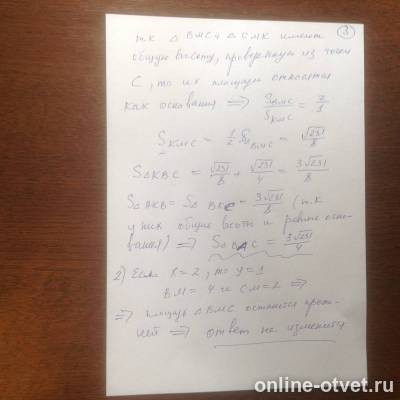 ③
тк △ BMC и △ CMK имеют
общую высоту, проведенную из точки
C, то их площади относятся
как основания ⟹ S_BMC / S_KMC = 2/1
S_KMC = 1/2 S_BMC = √231/8
S△KBC = √231/8 + √231/4 = 3√231/8
S△AKB = S△BKC = 3√231/8 (т.к
у них общие высоты и равные осно-
вания) ⟹ S△BAC = 3√231/4
2) Если x=2, то y=1
BM = 4 и CM = 2 ⟹
⟹ площадь △BMC останется преж-
ней ⟹ ответ не изменится
online-otvet.ru